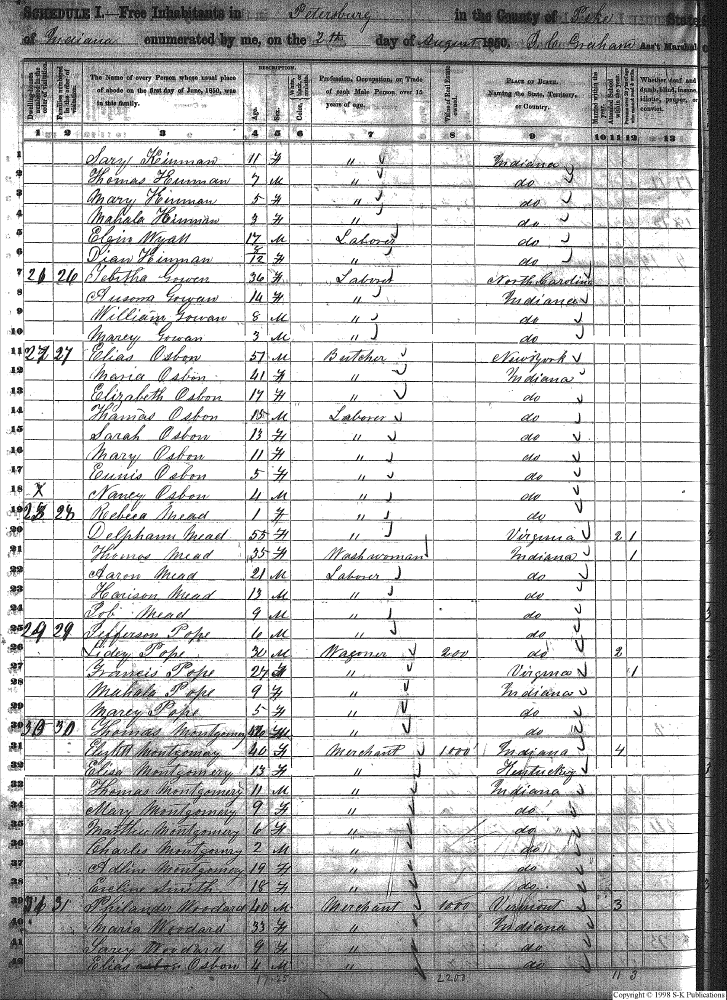 SCHEDULE I.—Free Inhabitants in Petersburg in the County of Pike State
of Indiana enumerated by me, on the 2th day of August 1850. Ass't Marshal
DESCRIPTION.
The Name of every Person whose usual place of abode on the first day of June, 1850, was in this family.
Age.
Sex.
Profession, Occupation, or Trade of each Male Person over 15 years of age.
Value of Real Estate owned.
PLACE OF BIRTH. Naming the State, Territory, or Country.
1 2 3 4 5 6 7 8 9 10 11 12 13
1 Sary Hinman 11 F " Indiana
2 Thomas Hinman 7 M " do
3 Mary Hinman 5 F " do
4 Mahala Hinman 3 F " do
5 Elgin Wyatt 17 M Laborer do
6 Dian Hinman 8/12 F " do
7 26 26 Tebitha Gowen 36 F Laborer North Carolina
8 Gowan 14 F " Indiana
9 William Gowan 8 M " do
10 Marey Gowan 3 M " do
11 27 27 Elias Osbon 51 M Butcher New York
12 Maria Osbon 41 F " Indiana
13 Elizabeth Osbon 17 F " do
14 Thamas Osbon 15 M Laborer do
15 Sarah Osbon 13 F " do
16 Mary Osbon 11 F " do
17 Eunis Osbon 5 F " do
18 X Nancy Osbon 4 M " do
19 28 28 Rebeca Mead 1 F " do
20 Delphann Mead 55 F " Virginia 2 1
21 Thomas Mead 35 F Washwoman Indiana 1
22 Aaron Mead 21 M Laborer do
23 Harison Mead 13 M " do
24 Mead 9 M " do
25 29 29 Jefferson Pope 6 M " do
26 Lidey Pope 30 M Wagoner 200 do 2
27 Francis Pope 27 F " Virginia 1
28 Mahala Pope 9 F " Indiana
29 Marey Pope 5 F " do
30 30 30 Thomas Montgomery M " do
31 Montgomery 40 F Merchant 1000 Indiana 4
32 Elisa Montgomery 13 F " Kentucky
33 Thomas Montgomery 11 M " Indiana
34 Mary Montgomery 9 F " do
35 Matthew Montgomery 6 F " do
36 Charles Montgomery 2 M " do
37 Adline Montgomery 19 F " do
38 Eveline Smith 18 F " do
39 31 31 Philander Woodard 40 M Merchant 1000 Vermont 3
40 Maria Woodard 33 F " Indiana
41 Sarey Woodard 9 F " do
42 Elias Osbon 4 M " do
17 25 2200 11 3
Copyright © 1998 S-K Publications